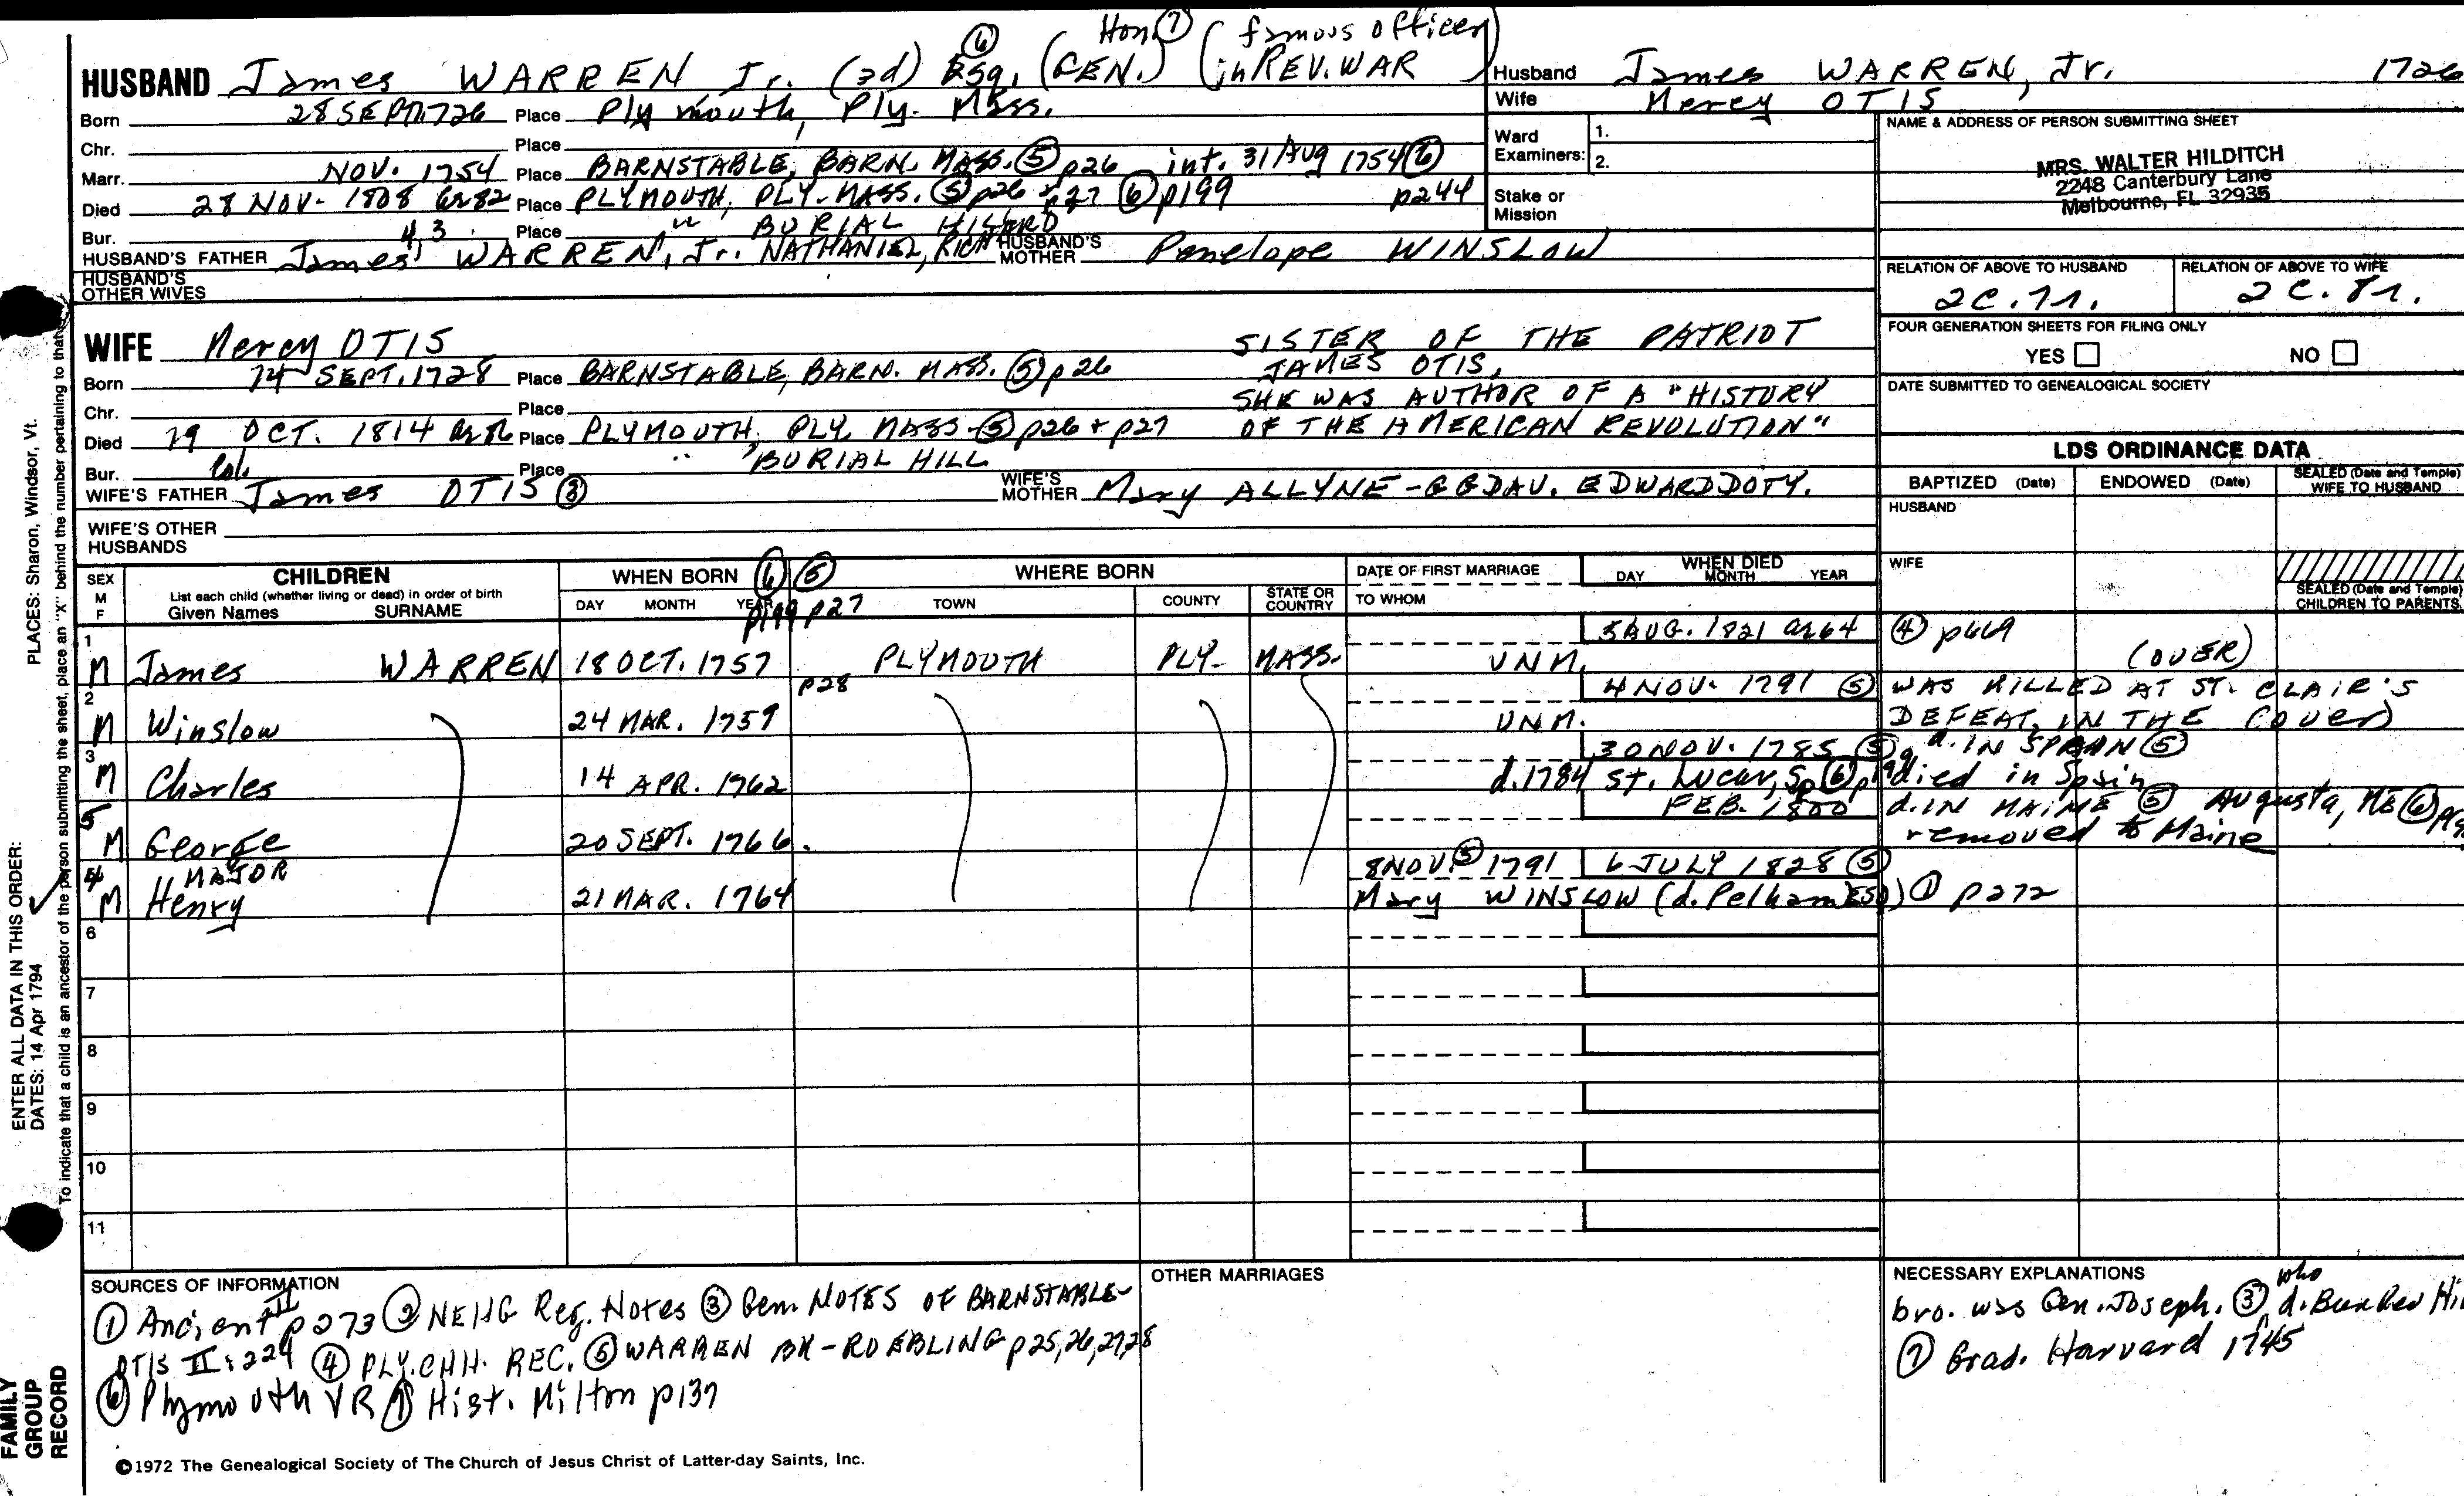 Hon. ⑦ (famous officer
HUSBAND James WARREN Jr. (3d) ⑥ Esq. (GEN.) in REV. WAR)
Born 28 SEPT. 1726 Place Plymouth, Ply. Mass.
Chr. Place
Marr. NOV. 1754 Place BARNSTABLE, BARN. MASS. ⑤ p26 int. 31 Aug 1754 ⑥ p244
Died 28 NOV. 1808 ae 82 Place PLYMOUTH, PLY. MASS. ⑤ p26 + p27 ⑥ p199
Bur. Place " BURIAL HILL
HUSBAND'S FATHER James 4,3 WARREN, Jr. NATHANIEL, RICHARD HUSBAND'S MOTHER Penelope WINSLOW
HUSBAND'S OTHER WIVES
Husband James WARREN, Jr. 1726
Wife Mercy OTIS
Ward Examiners: 1.
2.
Stake or Mission
NAME & ADDRESS OF PERSON SUBMITTING SHEET
MRS. WALTER HILDITCH
2248 Canterbury Lane
Melbourne, FL 32935
RELATION OF ABOVE TO HUSBAND RELATION OF ABOVE TO WIFE
2C.7r. 2C.8r.
FOUR GENERATION SHEETS FOR FILING ONLY
YES NO
DATE SUBMITTED TO GENEALOGICAL SOCIETY
WIFE Mercy OTIS
Born 14 SEPT. 1728 Place BARNSTABLE, BARN. MASS. ⑤ p26
Chr. Place
Died 19 OCT. 1814 ae 86 Place PLYMOUTH, PLY. MASS. ⑤ p26 + p27
Bur. Place " BURIAL HILL
SISTER OF THE PATRIOT
JAMES OTIS,
SHE WAS AUTHOR OF A "HISTORY
OF THE AMERICAN REVOLUTION"
WIFE'S FATHER Col. James OTIS ③ WIFE'S MOTHER Mary ALLYNE - GGDAU. EDWARD DOTY.
WIFE'S OTHER HUSBANDS
LDS ORDINANCE DATA
BAPTIZED (Date) ENDOWED (Date) SEALED (Date and Temple) WIFE TO HUSBAND
HUSBAND
WIFE
SEALED (Date and Temple) CHILDREN TO PARENTS
SEX M F
CHILDREN
List each child (whether living or dead) in order of birth
Given Names SURNAME
WHEN BORN ⑥ ⑤
DAY MONTH YEAR p199 p27
WHERE BORN
TOWN COUNTY STATE OR COUNTRY
DATE OF FIRST MARRIAGE
TO WHOM
WHEN DIED
DAY MONTH YEAR
1 5 AUG. 1821 ae 64 ④ p669
M James WARREN 18 OCT. 1757 PLYMOUTH PLY. MASS. UNM. (OVER)
2 p28 4 NOV. 1791 ⑤ WAS KILLED AT ST. CLAIR'S
M Winslow 24 MAR. 1759 UNM. DEFEAT, IN THE (over)
3 30 NOV. 1785 ⑤ d. IN SPAIN ⑤
M Charles 14 APR. 1762 d. 1784 St. Lucar, Sp ⑥ died in Spain
5 FEB. 1800 d. IN MAINE ⑤ Augusta, ME ⑥
M George 20 SEPT. 1766. removed to Maine
4 MAJOR 8 NOV. ⑤ 1791 6 JULY 1828 ⑤
M Henry 21 MAR. 1764 Mary WINSLOW (d. Pelham ESQ) ① p272
6
7
8
9
10
11
SOURCES OF INFORMATION
① Ancient II p273 ② NEHG Reg. Notes ③ Gen. NOTES OF BARNSTABLE-
OTIS II:224 ④ PLY. CHH. REC. ⑤ WARREN BK - ROEBLING p25,26,27,28
⑥ Plymouth VR ⑦ Hist. Milton p137
OTHER MARRIAGES
NECESSARY EXPLANATIONS
bro. was Gen. Joseph. ③ who d. Bunker Hi
⑦ Grad. Harvard 1745
©1972 The Genealogical Society of The Church of Jesus Christ of Latter-day Saints, Inc.
FAMILY GROUP RECORD
ENTER ALL DATA IN THIS ORDER:
DATES: 14 Apr 1794
PLACES: Sharon, Windsor, Vt.
To indicate that a child is an ancestor of the person submitting the sheet, place an "X" behind the number pertaining to that